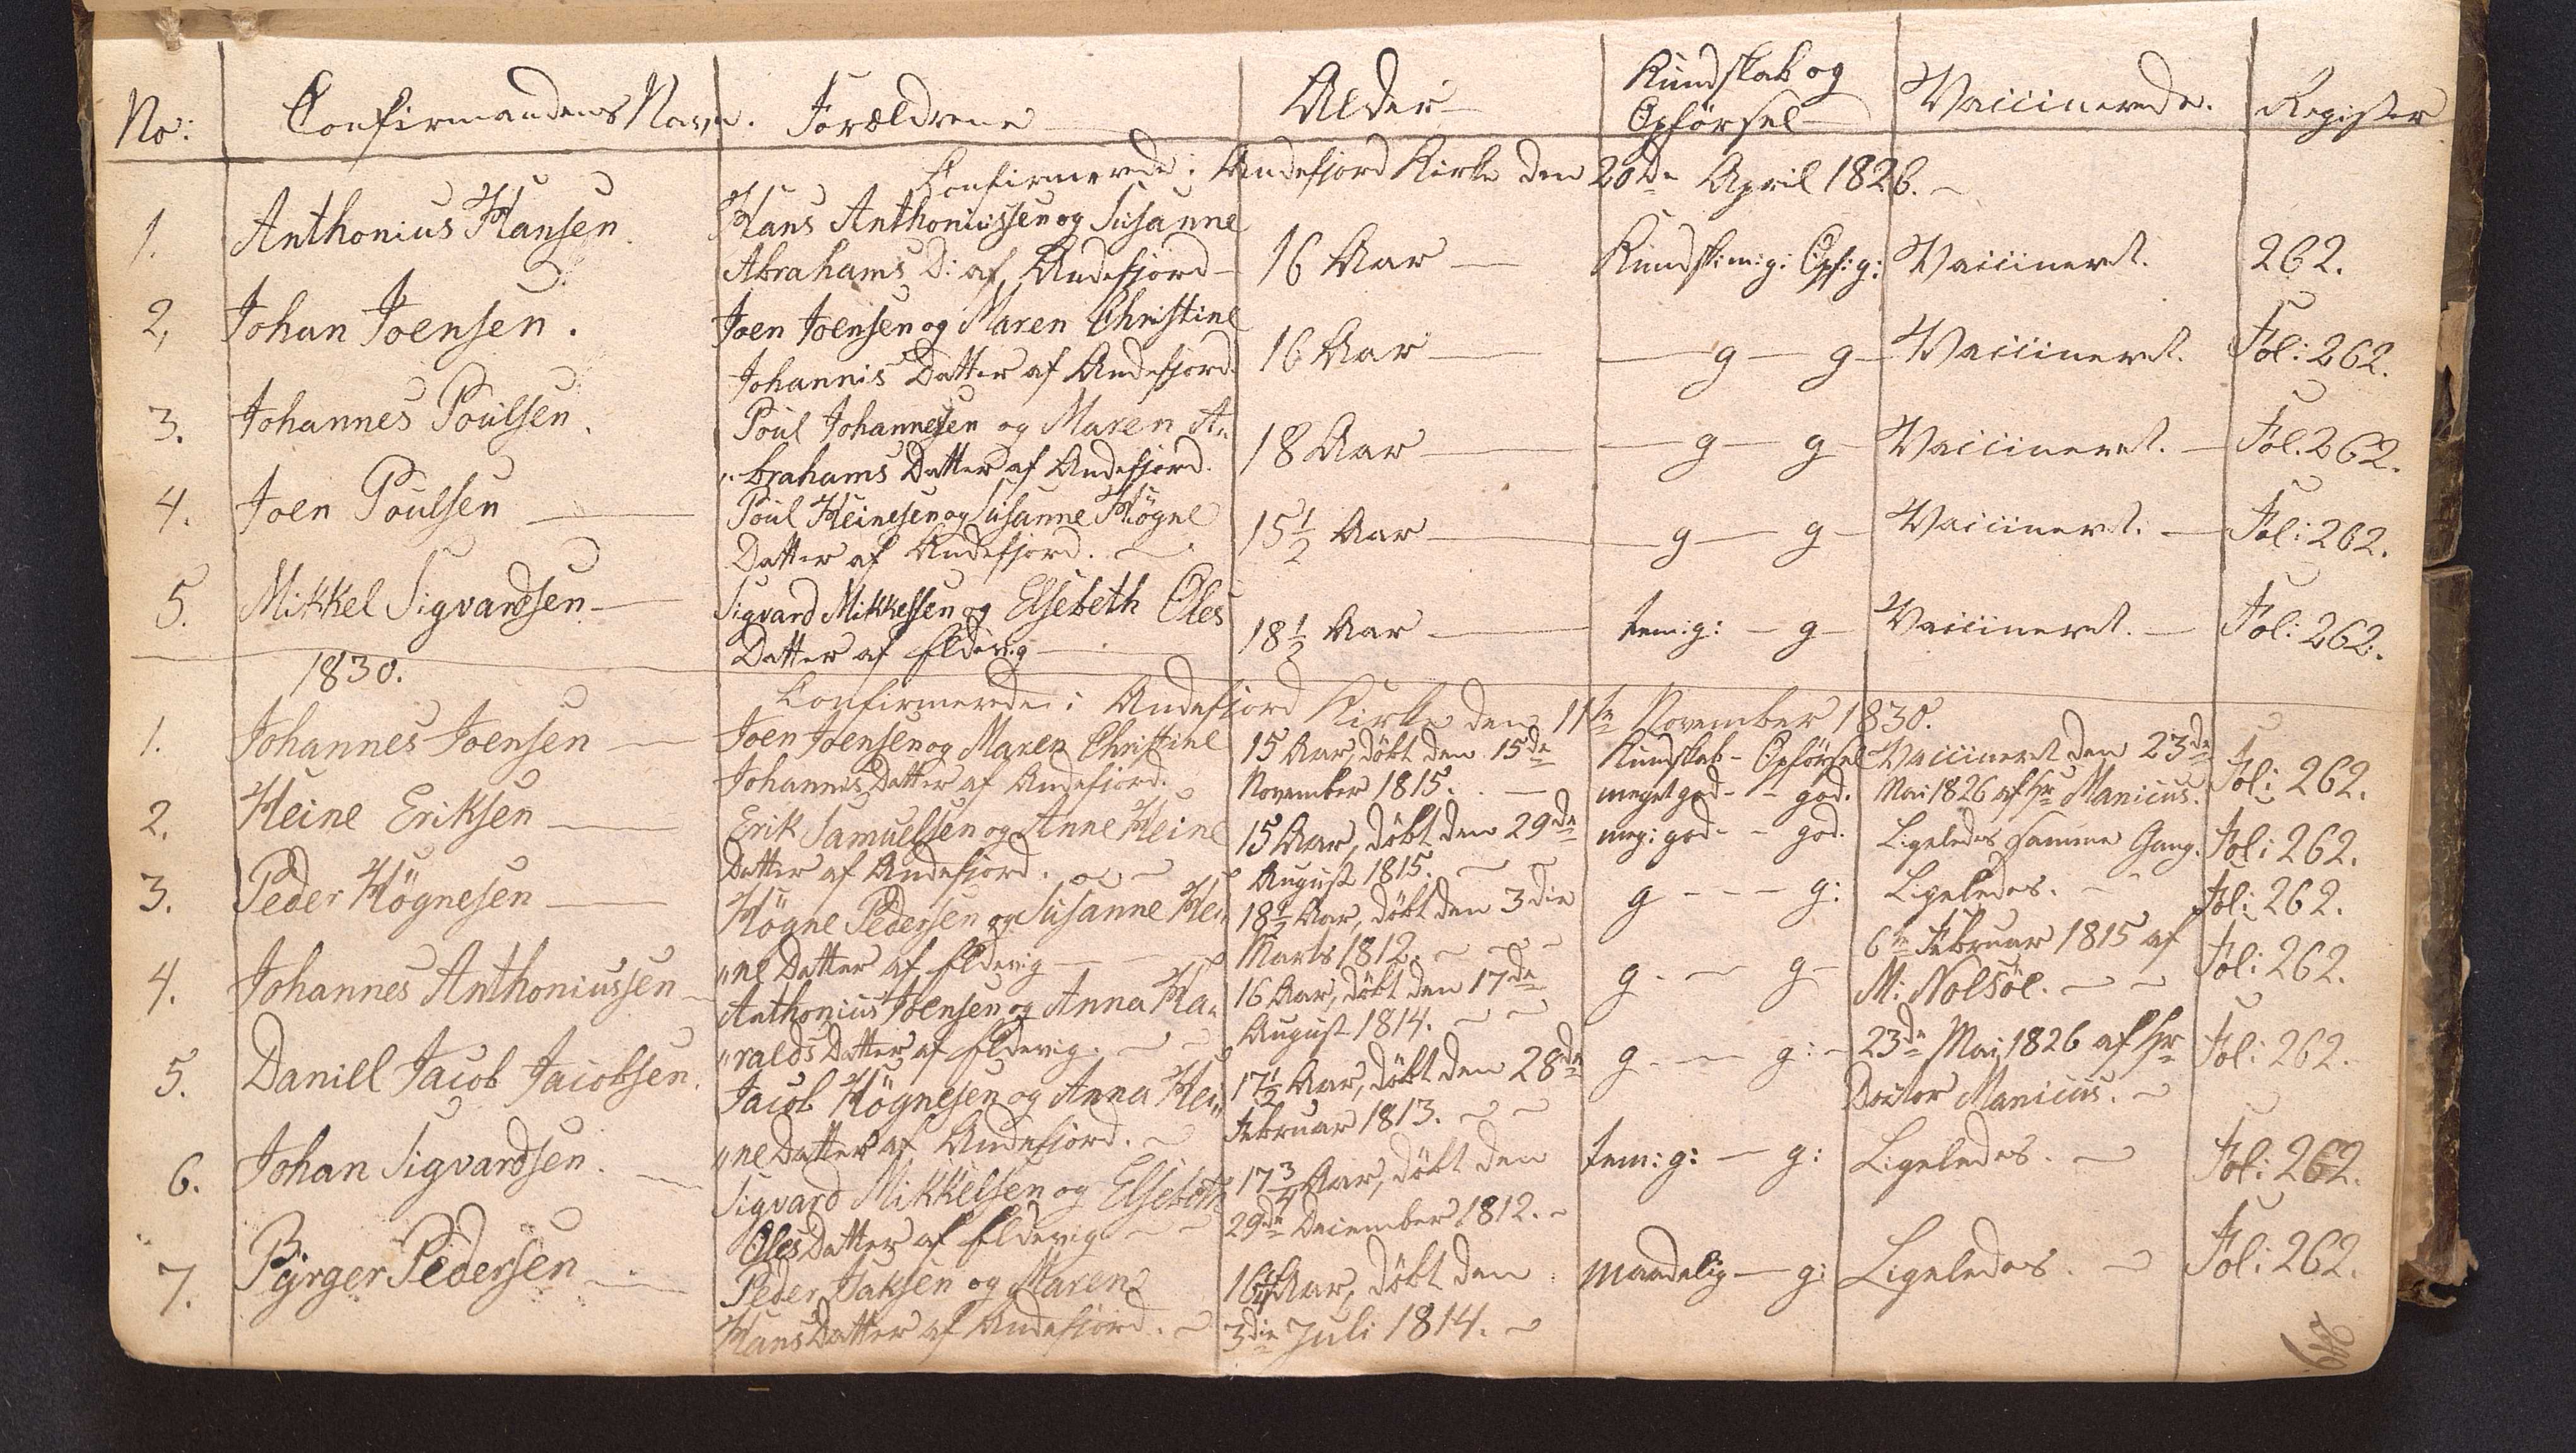 No: Confirmandens Navn. Forældrene Alder Kundskab og Opförsel Vaccinerede. Register
Confirmerede i Andefjord Kirke den 20de April 1826.
1. Anthonius Hansen. Hans Anthoniussen og Susanne 16 Aar Kundsk: m: g: Opf: g: Vaccineret. 262.
Abrahams D: af Andefjord
2, Johan Joensen. Joen Joensen og Maren Christine 16 Aar g g Vaccineret. Fol: 262.
Johannis Datter af Andefjord.
3. Johannes Poulsen. Poul Johannesen og Maren A„ 18 Aar g g Vaccineret. Fol. 262.
„brahams Datter af Andefjord.
4. Joen Poulsen Poul Heinesen og Susanne Högne 15 1/2 Aar g g Vaccineret. Fol: 262.
Datter af Andefjord.
5. Mikkel Sigvardsen Sigvard Mikkelsen og Elsebeth Oles 18 1/2 Aar tem: g: g Vaccineret. Fol: 262.
Datter af Eldevig
1830.
Confirmerede i Andefjord Kirke den 11te November 1830.
1. Johannes Joensen Joen Joensen og Maren Christine 15 Aar, döbt den 15de Kundskab - Opförsel Vaccineret den 23de Fol: 262.
Johannis Datter af Andefjord. November 1815. meget god - god. Mai 1826 af Hr Manicus.
2. Heine Eriksen Erik Samuelsen og Anne Heine 15 Aar, döbt den 29de meg: god - god. Ligeledes samme Gang. Fol: 262.
Datter af Andefjord. August 1815.
3. Peder Högnesen Högne Pedersen og Susanne Hei„ 18 1/2 Aar, döbt den 3die g g: Ligeledes. Fol: 262.
„ne Datter af Eldevig Marts 1812.
4. Johannes Anthoniussen Anthonius Joensen og Anna Ha„ 16 Aar, döbt den 17de g g 6te Februar 1815 af Fol: 262.
„ralds Datter af Eldevig. August 1814. M: Nolsöe.
5. Daniel Jacob Jacobsen. Jacob Högnesen og Anna Hei„ 17 1/2 Aar, döbt den 28de g g: 23de Mai 1826 af Hr Fol: 262.
„ne Datter af Andefjord. Februar 1813. Doctor Manicus.
6. Johan Sigvardsen. Sigvard Mikkelsen og Elsebeth 17 3/4 Aar, döbt den tem: g: g: Ligeledes. Fol: 262.
Oles Datter af Eldevig 29de December 1812.
7. Byrger Pedersen Peder Isaksen og Maren 16 1/4 Aar, döbt den maadelig g: Ligeledes. Fol: 262.
Hans Datter af Andefjord. 3die Juli 1814.